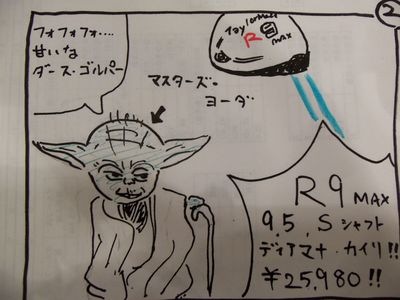 2
フォフォフォ....
甘いな
ダース・ゴルパー
TaylorMade
R 9
MAX
マスターズー
ヨーダ
R9 MAX
9.5. S シャフト
ディアマナ・カイリ!!
¥25,980!!